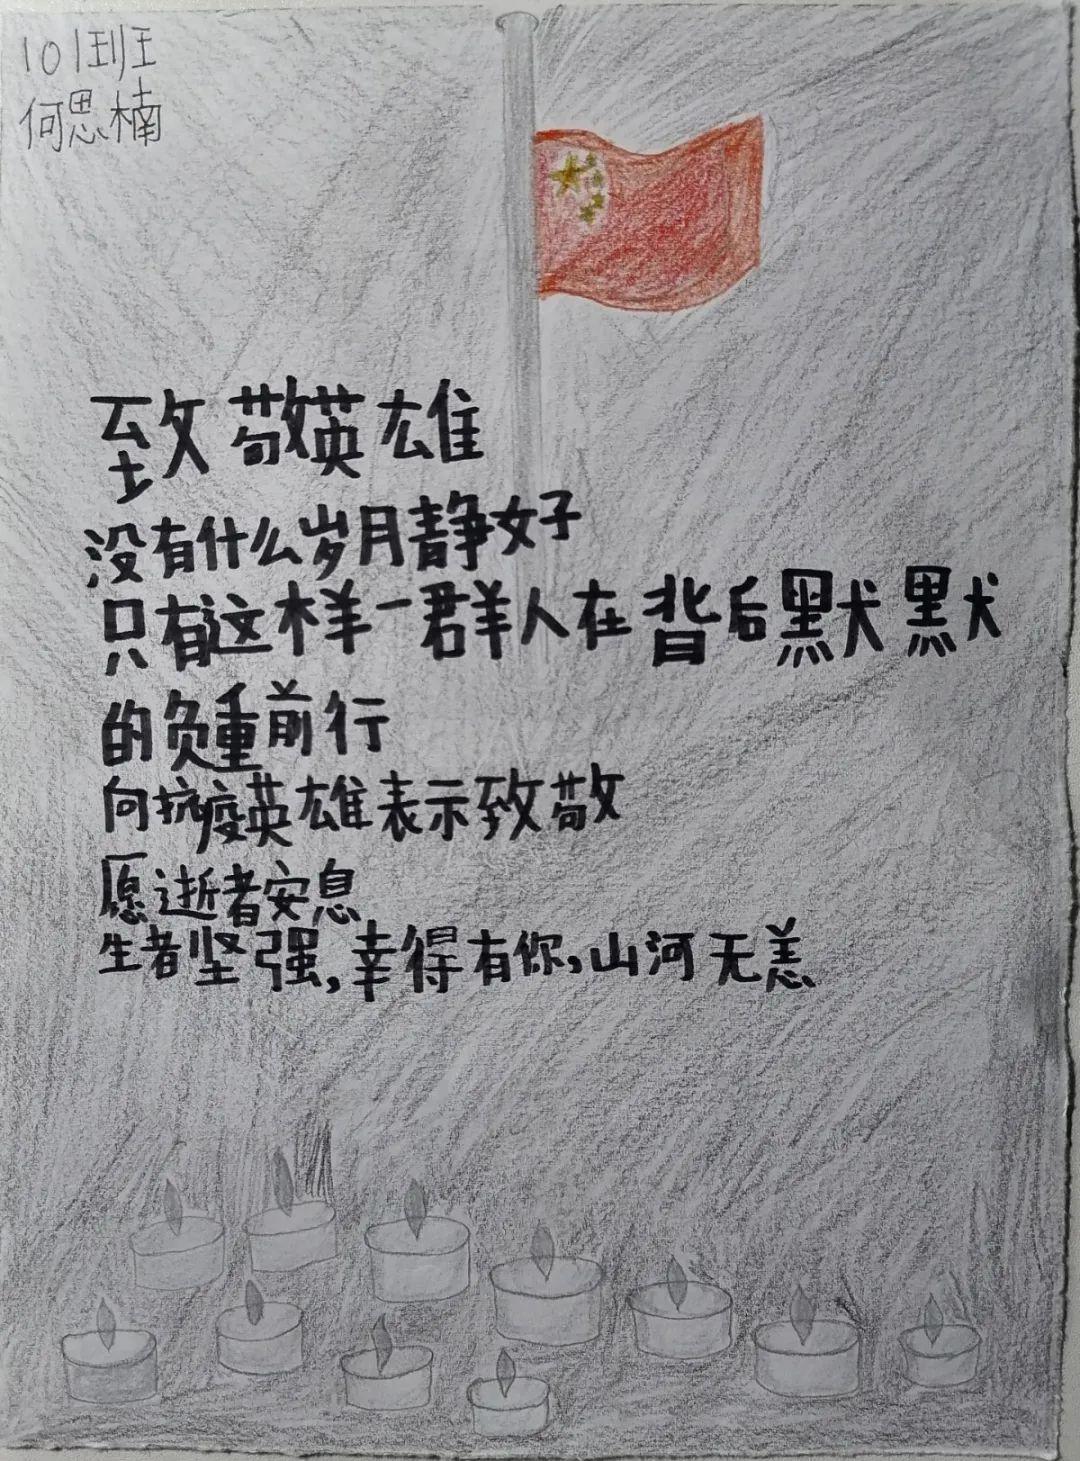 101班
何思楠
致敬英雄
没有什么岁月静好
只有这样一群人在背后默默
的负重前行
向抗疫英雄表示致敬
愿逝者安息
生者坚强,幸得有你,山河无恙